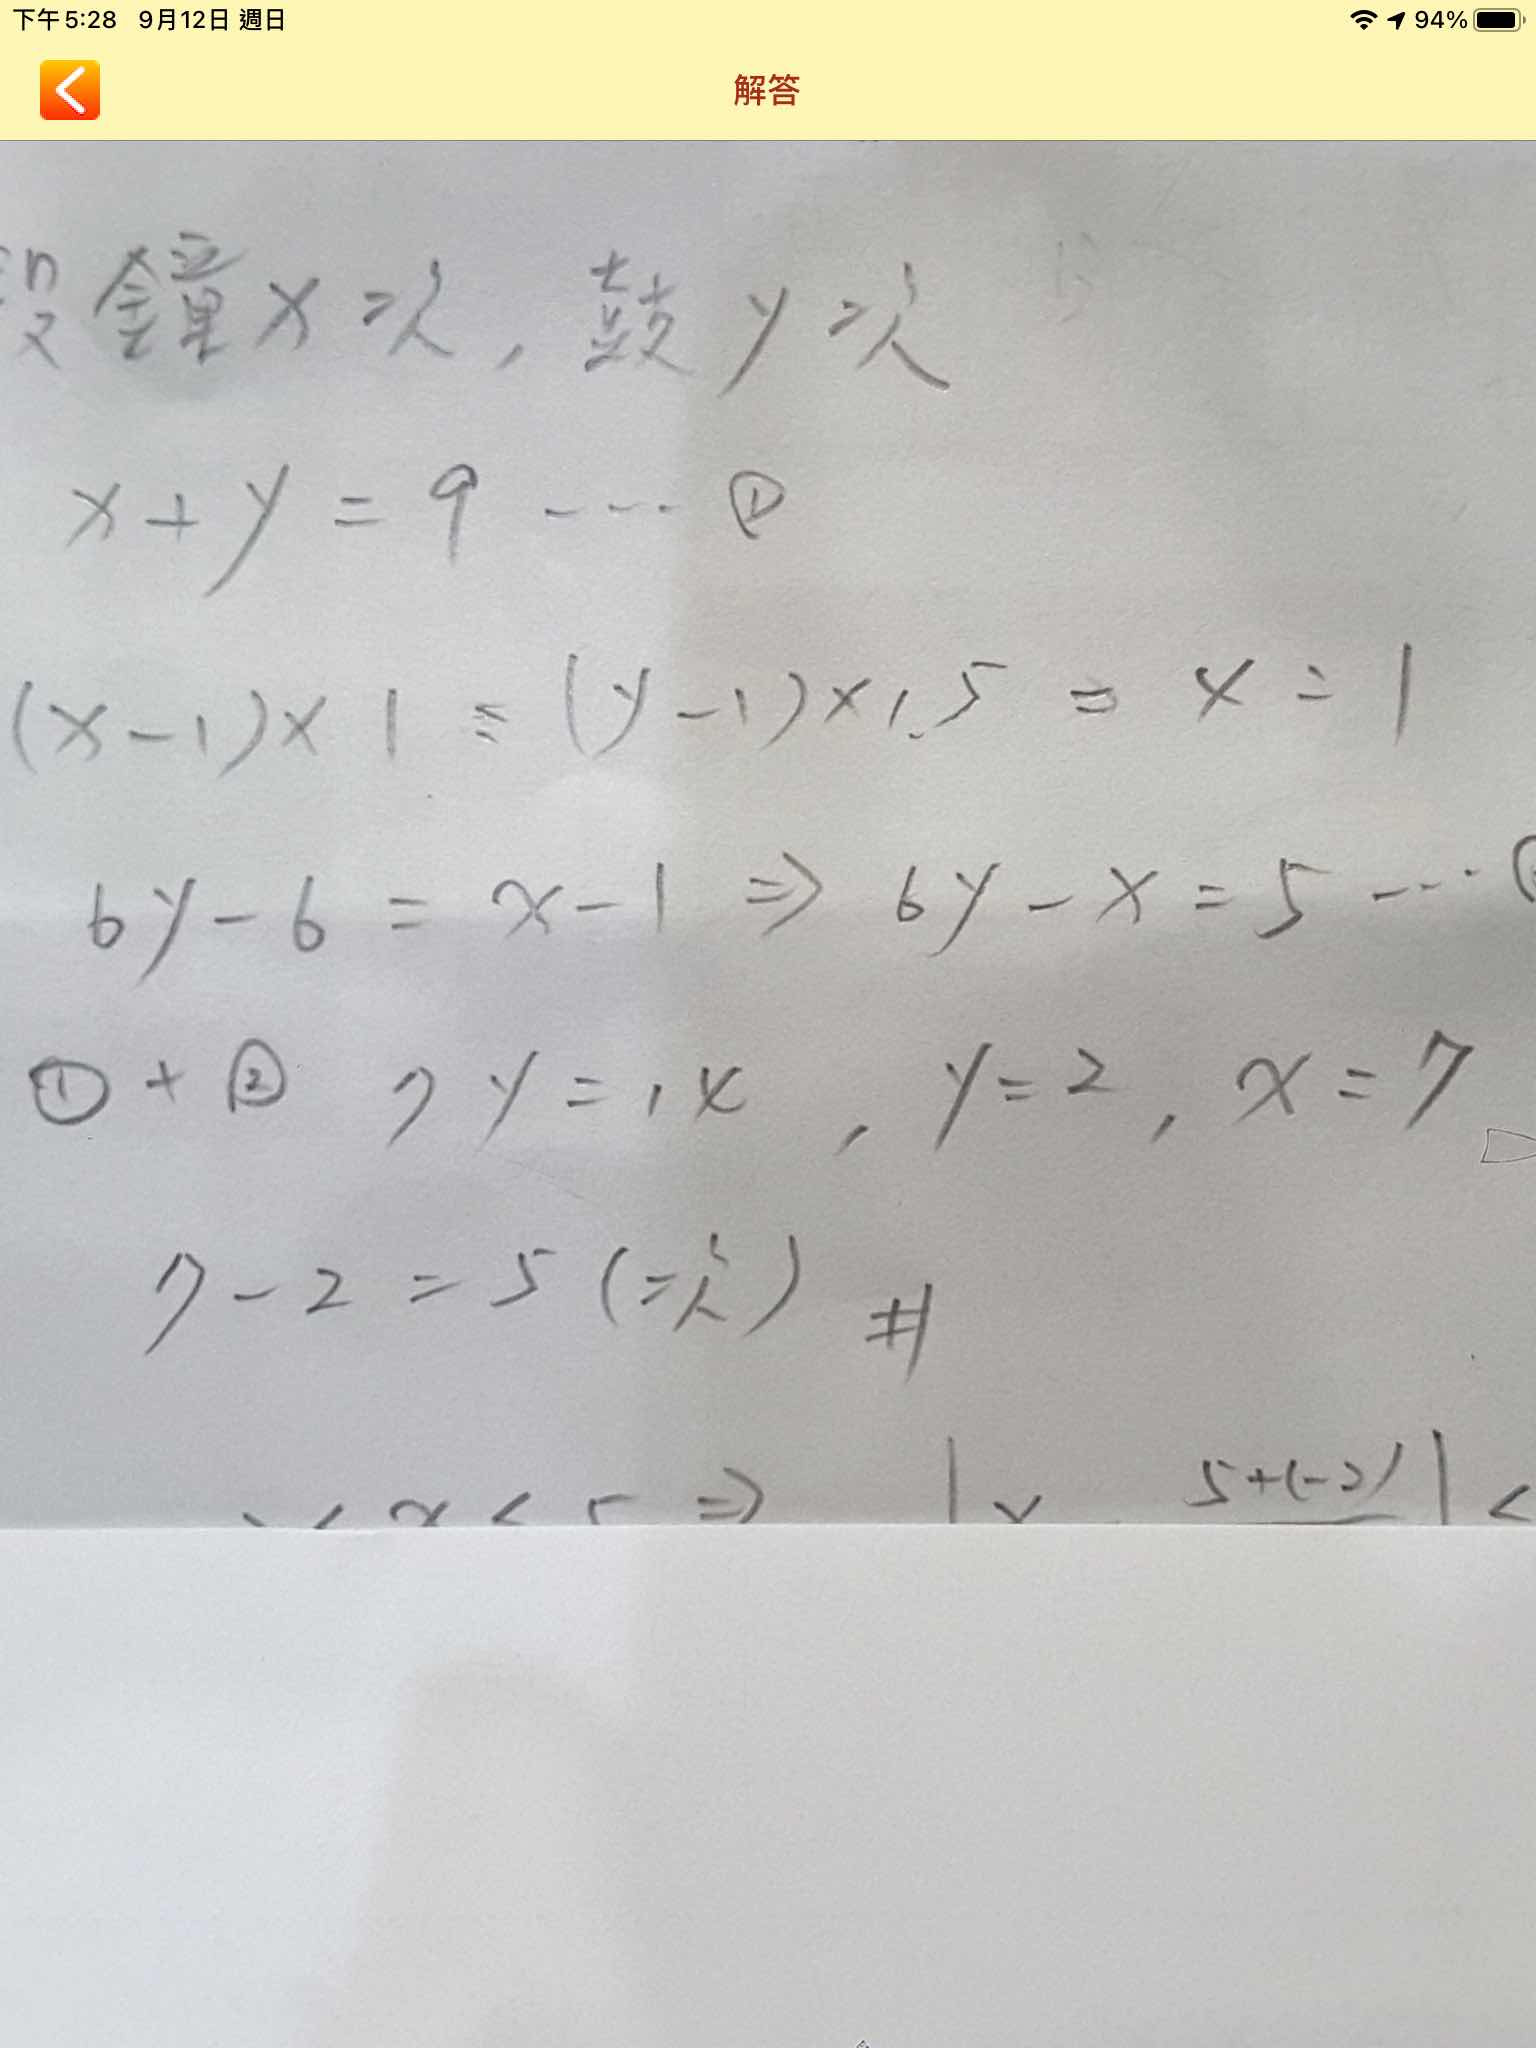 下午5:28 9月12日 週日 94%
解答
設鐘x次，鼓y次
x+y=9 ---- ①
(x-1)×1 = (y-1)×1.5 = 4 = 1
6y-6 = x-1 ⇒ 6y-x=5 ----
①+② 7y=14，y=2，x=7
7-2=5(次) #
< x < 5 ⇒ | 5+(-2) | <